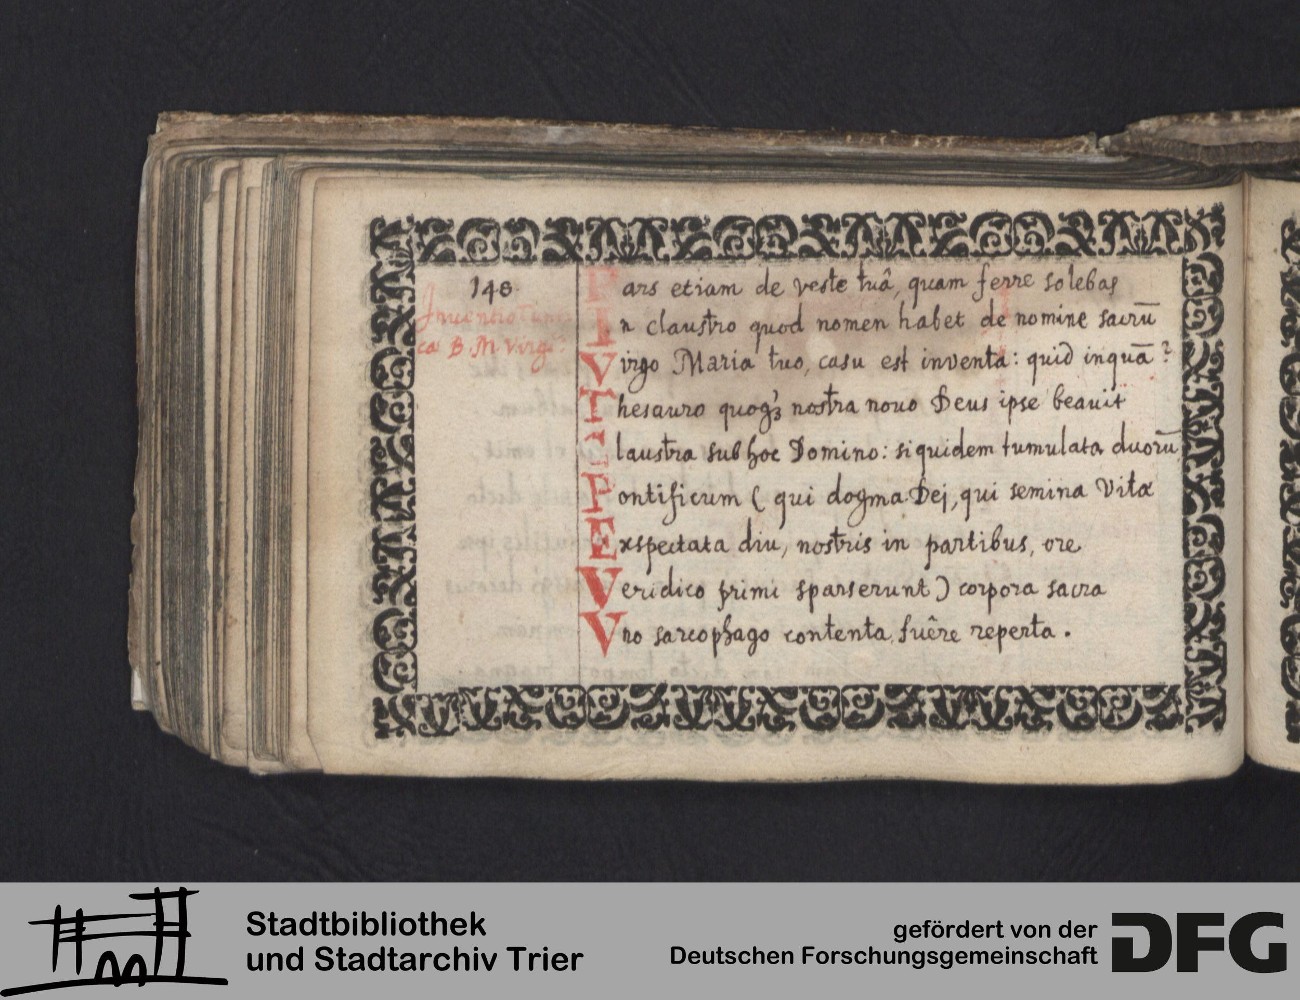 148
Inuentio tuni
cæ B. M Virg:
Pars etiam de veste tuâ, quam ferre solebas
In claustro quod nomen habet de nomine sacrū
Virgo Maria tuo, casu est inventa: quid inquā?
Thesauro quoqꝫ nostra nouo Deus ipse beavit
Claustra sub hoc Domino: siquidem tumulata duorū
Pontificum ( qui dogma Dej, qui semina Vitæ
Exspectata diu, nostris in partibus, ore
Veridico primi sparserunt) corpora sacra
Vno sarcophago contenta, fuêre reperta.
Stadtbibliothek
und Stadtarchiv Trier
gefördert von der
Deutschen Forschungsgemeinschaft
DFG